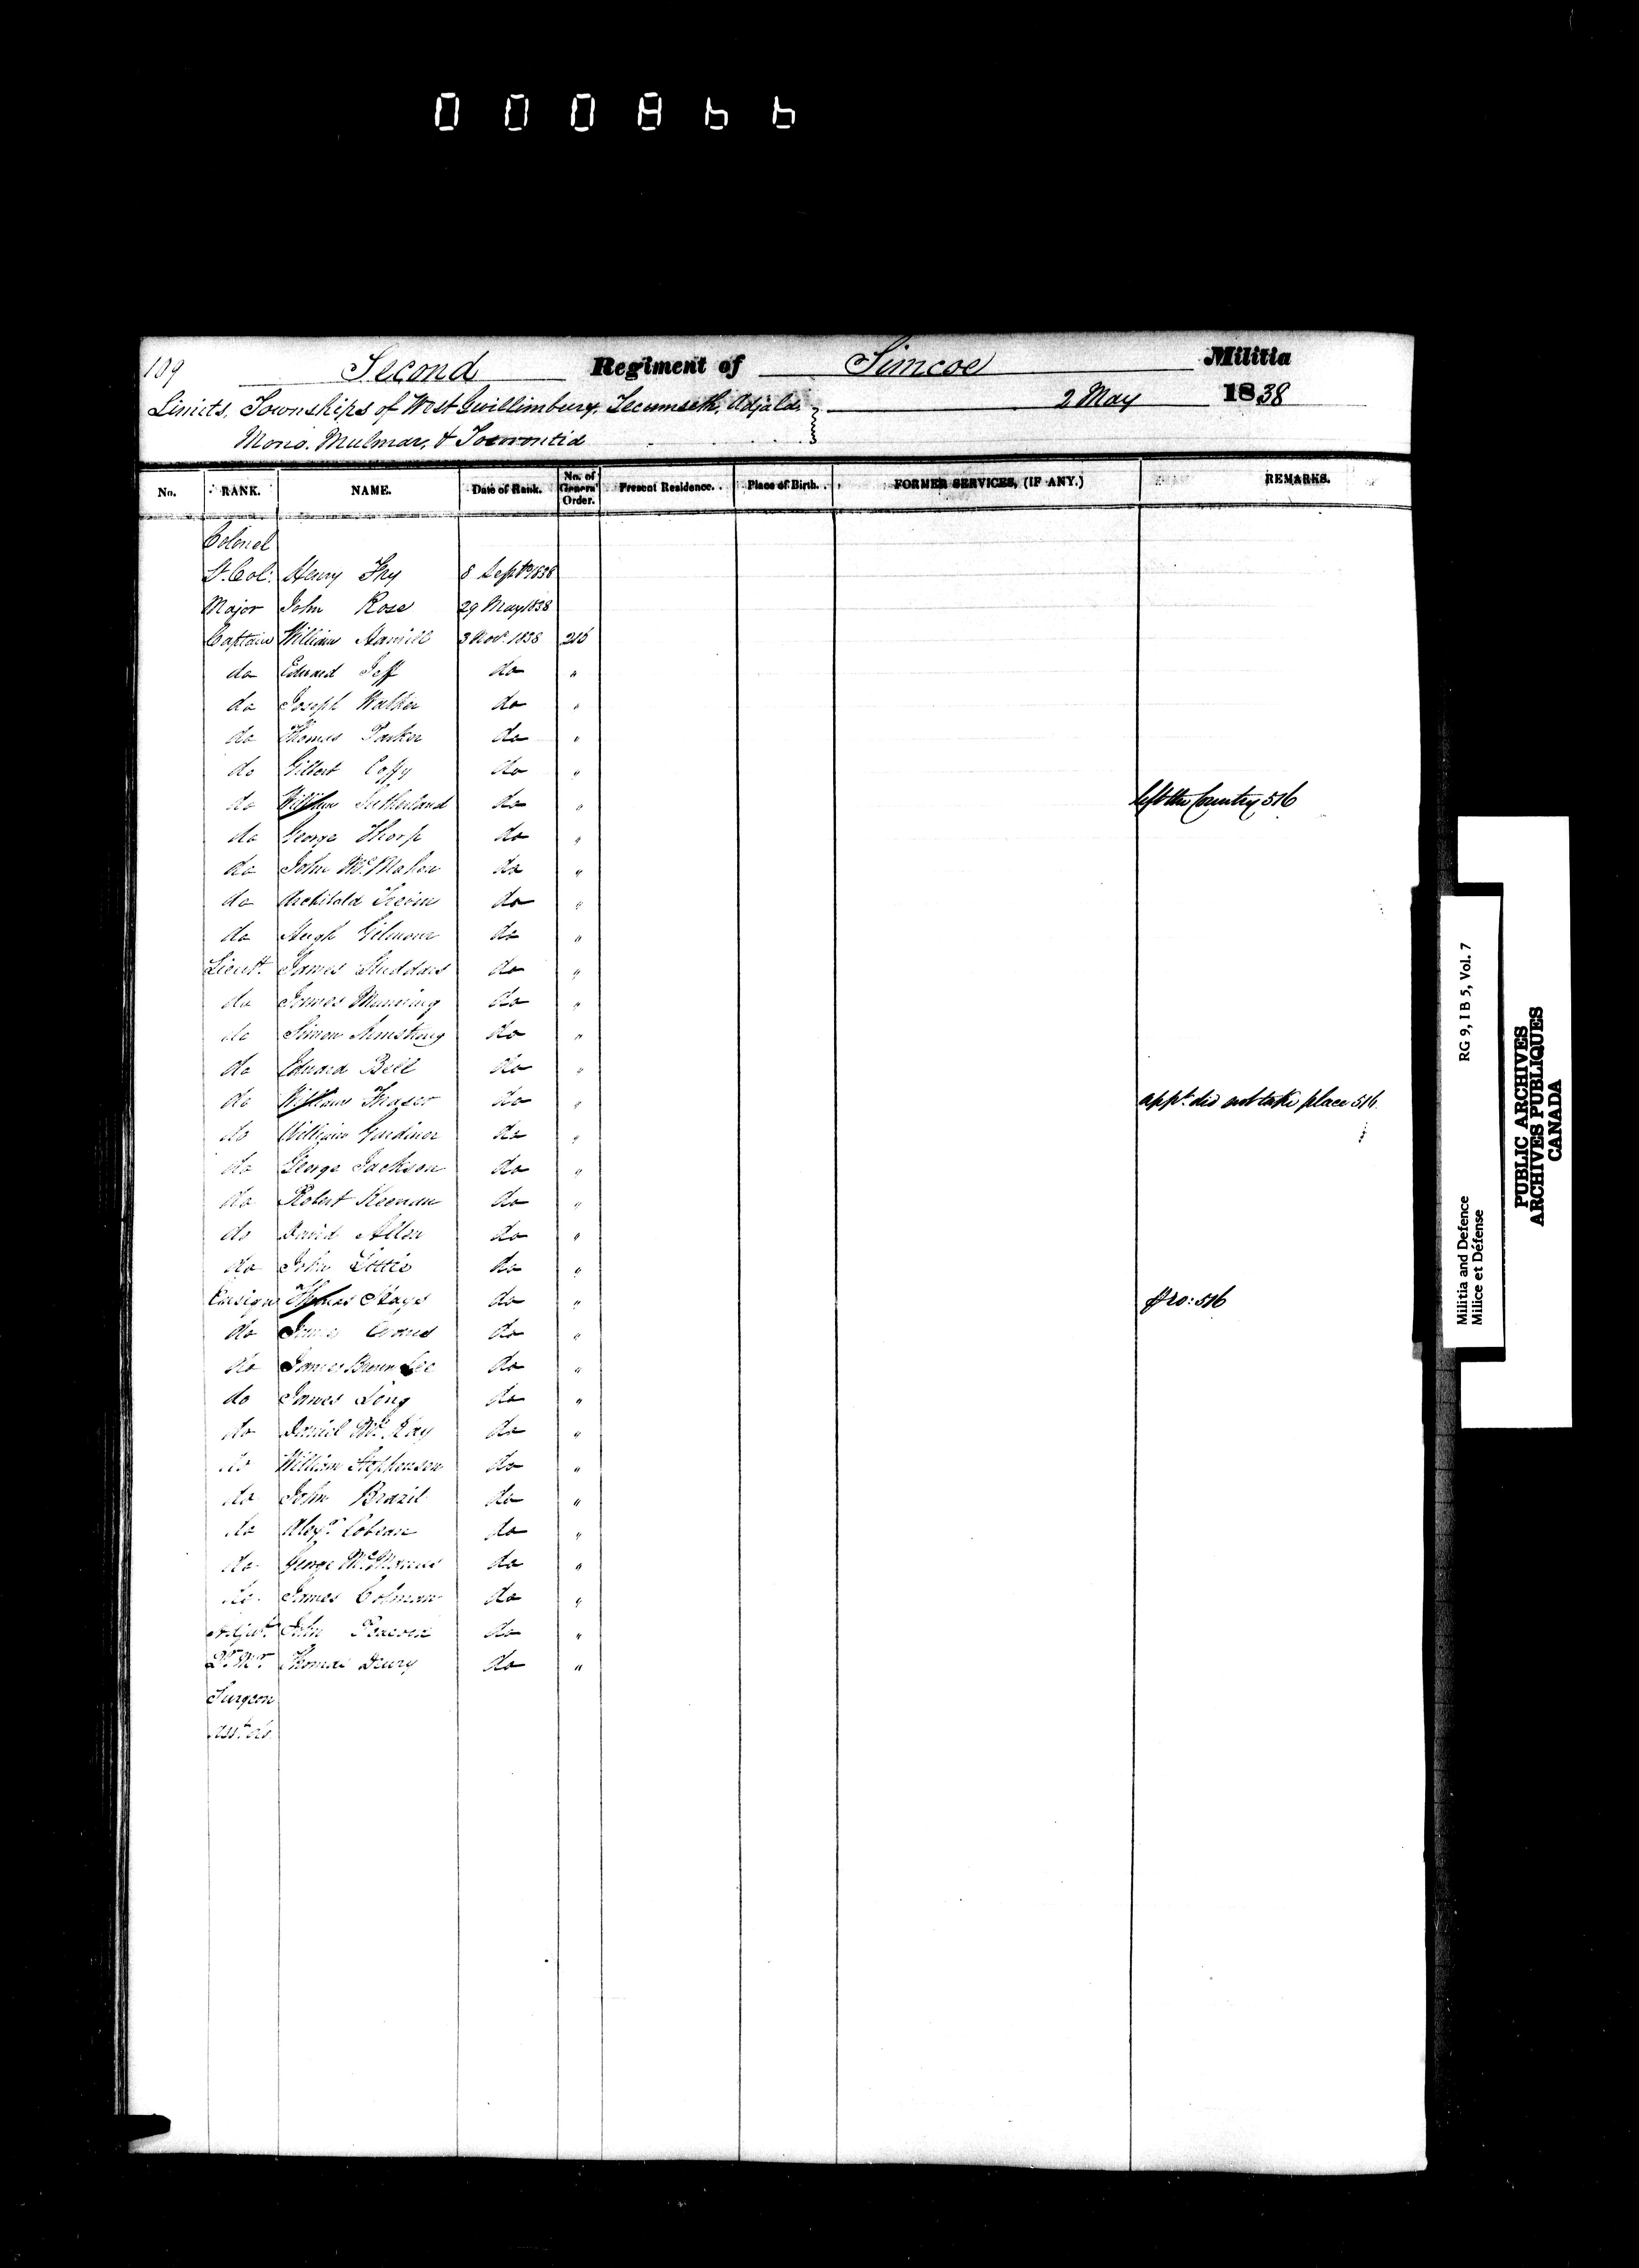 000866
109 Second Regiment of Simcoe Militia
Limits, Townships of West Gwillimbury, Tecumseth, Adjala 2 May 1838
Mono, Mulmar, & Tosorontio
No. RANK. NAME. Date of Rank. No. of General Order. Present Residence. Place of Birth. FORMER SERVICES, (IF ANY.) REMARKS.
Colonel
Lt. Col. Henry 8 Sept 1838
Major John Rose 29 May 1838
Captain William Hamill 3 Novr. 1838 216
do Edward Jeff do "
do Joseph Walker do "
do Thomas Parker do "
do Gilbert Coffy do "
do William Sutherland do " left the Country 516
do George Thorp do "
do John McMahon do "
do Archibald do "
do Hugh Gilmour do "
Lieutt. James Studdars do "
do James Manning do "
do Simon Armstrong do "
do Edward Bell do "
do William Fraser do " appt. did not take place 516
do William Gardiner do "
do George Jackson do "
do Robert Keenan do "
do David Allen do "
do John Little do "
Ensign Thomas Hays do " pro: 516
do James Evans do "
do James Brown Lee do "
do James Long do "
do Daniel McKay do "
do William Stephenson do "
do John Brazil do "
do Alexr. do "
do George McManus do "
do James Colman do "
Adjut. John do "
Qr. Mr. Thomas Drury do "
Surgeon
Asst. do.
Militia and Defence RG 9, I B 5, Vol. 7
Milice et Défense
PUBLIC ARCHIVES
ARCHIVES PUBLIQUES
CANADA